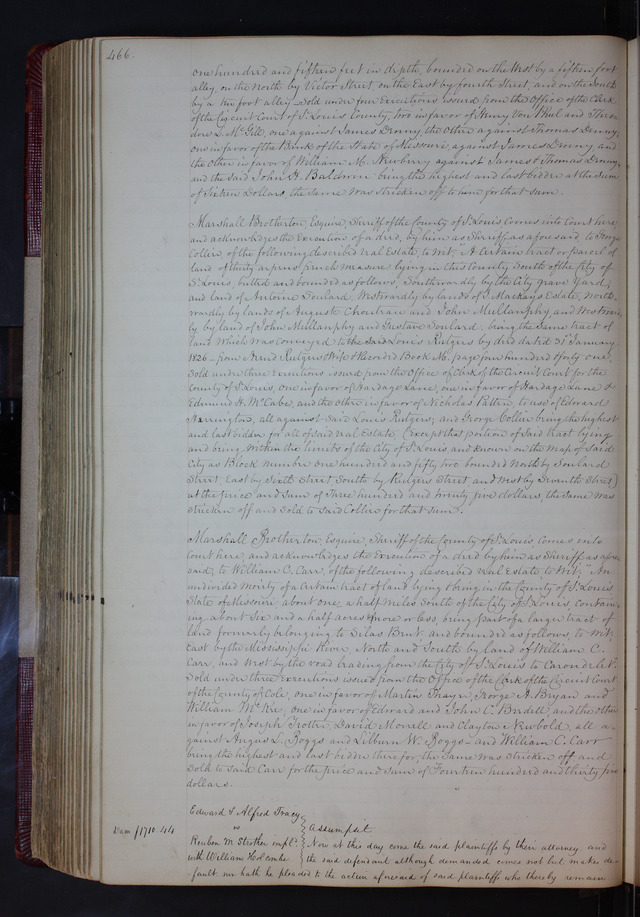 466.
one hundred and fifteen feet in depth, bounded on the West by a fifteen foot
alley, on the North by Victor Street on the East by fourth Street, and on the South
by a ten foot alley. Sold under four Executions issued from the Office of the Clerk
of the Circuit Court of St Louis County, two in favor of Henry Von Phul and Theo-
dore L. McGill, one against James Denny, the Other against Thomas Denny,
one in favor of the Bank of the State of Missouri against James Denny, and
the Other in favor of William M. Newberry against James & Thomas Denny,
and the said John H. Baldwin being the highest and last bidder at the sum
of Sixteen Dollars, the same was stricken off to him for that sum.
Marshall Brotherton, Esquire, Sheriff of the County of St Louis Comes into Court here
and acknowledges the Execution of a deed, by him as Sheriff as aforesaid, to George
Collier, of the following described real Estate, to wit; A Certain tract or parcel of
land of thirty arpens french measure lying in this County South of the City of
St Louis, butted and bounded as follows, Southwardly by the City grave Yard,
and land of Antoine Soulard, Westwardly by lands of J. Mackay's Estate, North-
wardly by lands of Auguste Chouteau and John Mullanphy and Westward-
ly by land of John Mullanphy and Gustave Soulard, being the Same tract of
land which was conveyed to the said Louis Rutgers by deed dated 31st January
1826 from Arend Rutgers & Wife & Recorded Book M. page four hundred & forty one.
Sold under three executions issued from the Office of Clerk of the Circuit Court for the
County of St Louis, One in favor of Hardage Lane, one in favor of Hardage Lane &
Edmund H. McCabe, and the other in favor of Nicholas Patten, to use of Edward
Harrington, all against said Louis Rutgers, and George Collier being the highest
and last bidder for all of said real Estate, (except that portion of said tract lying
and being within the limits of the City of St Louis, and known on the map of said
City as Block number one hundred and fifty two bounded North by Soulard
Street, East by Sixth Street, South by Rutgers Street and West by Seventh Street)
at the price and Sum of Three hundred and twenty five dollars, the Same was
stricken off and Sold to said Collier for that sum.
Marshall Brotherton, Esquire, Sheriff of the County of St Louis, Comes into
Court here, and acknowledges the Execution of a deed by him as Sheriff as afore-
said, to William C. Carr, of the following described real Estate to wit; "An
undivided moiety of a certain tract of land lying & being in the County of St Louis
State of Missouri, about one & a half miles South of the City of St Louis, contain-
ing about Six and a half acres & more or less, being part of a larger tract of
land formerly belonging to Silas Bent, and bounded as follows, to wit;
East by the Mississippi River, North and South by land of William C.
Carr, and West by the road leading from the City of St Louis to Carondelet.
Sold under three executions issued from the Office of the Clerk of the Circuit Court
of the County of Cole, one in favor of Martin Thayer, George A. Bryan and
William McKee, one in favor of Edward and John C. Bredell, and the other
in favor of Joseph Trotter, David Morrell and Clayton Newbold, all a-
gainst Angus L. Boggs and Lilburn W. Boggs – and William C. Carr
being the highest and last bidder therefor, the Same was Stricken off and
Sold to said Carr for the price and sum of Fourteen hundred and thirty five
dollars.
Edward & Alfred Tracy
vs
Assumpsit
Reuben M. Strother impl.
with William Holcombe
Now at this day come the said plaintiffs by their attorney and
the said defendant although demanded comes not but makes de-
fault nor hath he pleaded to the action aforesaid of said plaintiffs who thereby remain